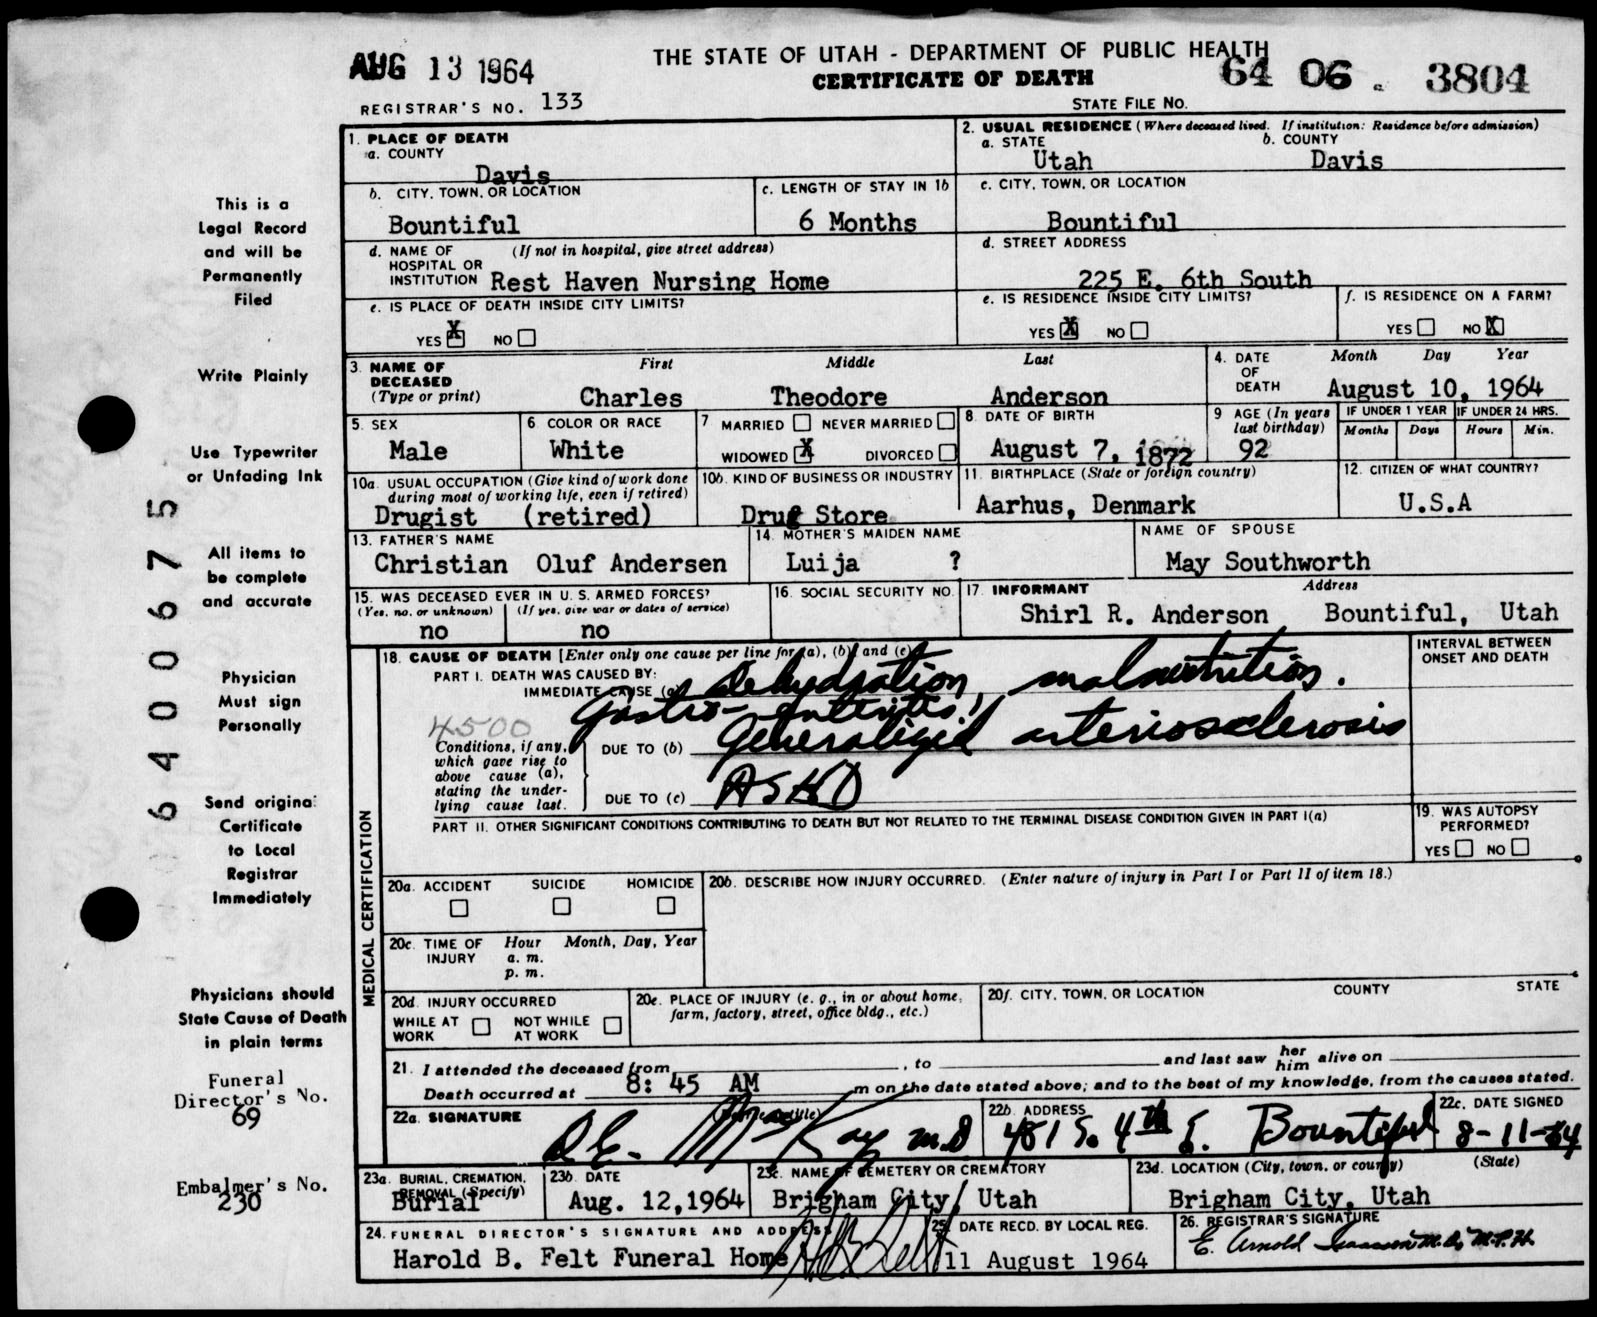 AUG 13 1964
THE STATE OF UTAH - DEPARTMENT OF PUBLIC HEALTH
CERTIFICATE OF DEATH
64 06 3804
REGISTRAR'S NO. 133
STATE FILE NO.
1. PLACE OF DEATH
a. COUNTY
Davis
2. USUAL RESIDENCE (Where deceased lived. If institution: Residence before admission)
a. STATE
Utah
b. COUNTY
Davis
b. CITY, TOWN, OR LOCATION
Bountiful
c. LENGTH OF STAY IN 1b
6 Months
c. CITY, TOWN, OR LOCATION
Bountiful
d. NAME OF HOSPITAL OR INSTITUTION (If not in hospital, give street address)
Rest Haven Nursing Home
d. STREET ADDRESS
225 E. 6th South
e. IS PLACE OF DEATH INSIDE CITY LIMITS?
YES X NO
e. IS RESIDENCE INSIDE CITY LIMITS?
YES X NO
f. IS RESIDENCE ON A FARM?
YES NO X
3. NAME OF DECEASED (Type or print)
First Middle Last
Charles Theodore Anderson
4. DATE OF DEATH
Month Day Year
August 10, 1964
5. SEX
Male
6 COLOR OR RACE
White
7 MARRIED NEVER MARRIED
WIDOWED X DIVORCED
8. DATE OF BIRTH
August 7, 1872
9 AGE (In years last birthday)
92
IF UNDER 1 YEAR
Months Days
IF UNDER 24 HRS.
Hours Min.
10a. USUAL OCCUPATION (Give kind of work done during most of working life, even if retired)
Drugist (retired)
10b. KIND OF BUSINESS OR INDUSTRY
Drug Store
11. BIRTHPLACE (State or foreign country)
Aarhus, Denmark
12. CITIZEN OF WHAT COUNTRY?
U.S.A
13. FATHER'S NAME
Christian Oluf Andersen
14. MOTHER'S MAIDEN NAME
Luija ?
NAME OF SPOUSE
May Southworth
15. WAS DECEASED EVER IN U. S. ARMED FORCES?
(Yes, no, or unknown) (If yes, give war or dates of service)
no no
16. SOCIAL SECURITY NO.
17. INFORMANT Address
Shirl R. Anderson Bountiful, Utah
MEDICAL CERTIFICATION
18. CAUSE OF DEATH [Enter only one cause per line for (a), (b) and (c)
INTERVAL BETWEEN ONSET AND DEATH
PART I. DEATH WAS CAUSED BY:
IMMEDIATE CAUSE (a) Dehydration, malnutrition.
Gastro-enteritis!
4500
Conditions, if any, which gave rise to above cause (a), stating the underlying cause last.
DUE TO (b) Generalized arteriosclerosis
DUE TO (c) ASHD
PART II. OTHER SIGNIFICANT CONDITIONS CONTRIBUTING TO DEATH BUT NOT RELATED TO THE TERMINAL DISEASE CONDITION GIVEN IN PART I(a)
19. WAS AUTOPSY PERFORMED?
YES NO
20a. ACCIDENT SUICIDE HOMICIDE
20b. DESCRIBE HOW INJURY OCCURRED. (Enter nature of injury in Part I or Part II of item 18.)
20c. TIME OF INJURY
Hour Month, Day, Year
a. m.
p. m.
20d. INJURY OCCURRED
WHILE AT WORK NOT WHILE AT WORK
20e. PLACE OF INJURY (e. g., in or about home, farm, factory, street, office bldg., etc.)
20f. CITY, TOWN, OR LOCATION COUNTY STATE
21. I attended the deceased from , to and last saw her him alive on
Death occurred at 8: 45 AM m on the date stated above; and to the best of my knowledge, from the causes stated.
22a. SIGNATURE
D.E. McKay M.D
22b. ADDRESS
481 S. 4th E. Bountiful
22c. DATE SIGNED
8-11-64
23a. BURIAL, CREMATION, REMOVAL (Specify)
Burial
23b. DATE
Aug. 12, 1964
23c. NAME OF CEMETERY OR CREMATORY
Brigham City, Utah
23d. LOCATION (City, town, or county) (State)
Brigham City, Utah
24. FUNERAL DIRECTOR'S SIGNATURE AND ADDRESS
Harold B. Felt Funeral Home HB Felt
25. DATE RECD. BY LOCAL REG.
11 August 1964
26. REGISTRAR'S SIGNATURE
E. Arnold Isaacson M.D., M.P.H.
This is a
Legal Record
and will be
Permanently
Filed
Write Plainly
Use Typewriter
or Unfading Ink
All items to
be complete
and accurate
Physician
Must sign
Personally
Send original
Certificate
to Local
Registrar
Immediately
Physicians should
State Cause of Death
in plain terms
Funeral
Director's No.
69
Embalmer's No.
230
64000675